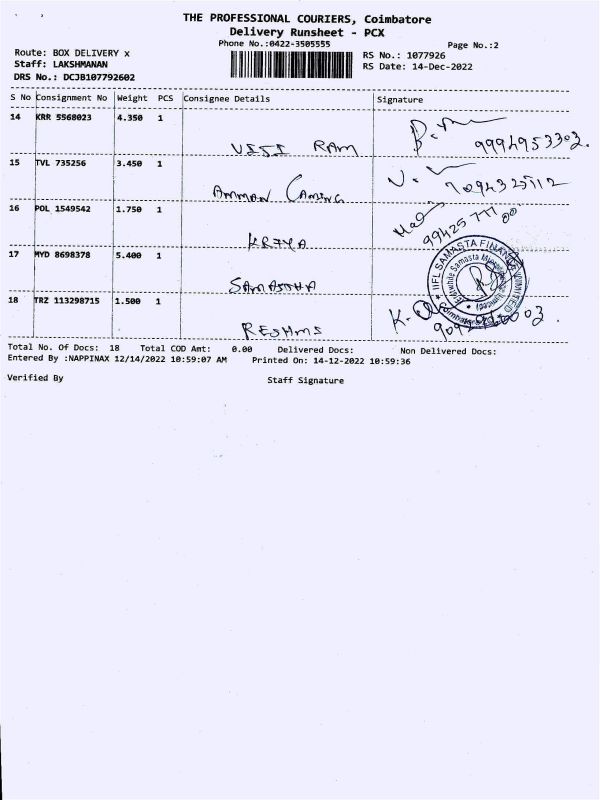 THE PROFESSIONAL COURIERS, Coimbatore
Delivery Runsheet - PCX
Phone No.:0422-3505555
Page No.:2
Route: BOX DELIVERY x
Staff: LAKSHMANAN
DRS No.: DCJB107792602
RS No.: 1077926
RS Date: 14-Dec-2022
S No Consignment No Weight PCS Consignee Details Signature
14 KRR 5568023 4.350 1
VIJI RAM 9994953303.
15 TVL 735256 3.450 1
AMMAN 7094325112
16 PDL 1549542 1.750 1
KRIYA 99425
17 MYD 8698378 5.400 1
SAMASTHA
IIFL SAMASTA FINANCE LIMITED
18 TRZ 113298715 1.500 1
RESHMS
Total No. Of Docs: 18 Total COD Amt: 0.00 Delivered Docs: Non Delivered Docs:
Entered By :NAPPINAX 12/14/2022 10:59:07 AM Printed On: 14-12-2022 10:59:36
Verified By Staff Signature